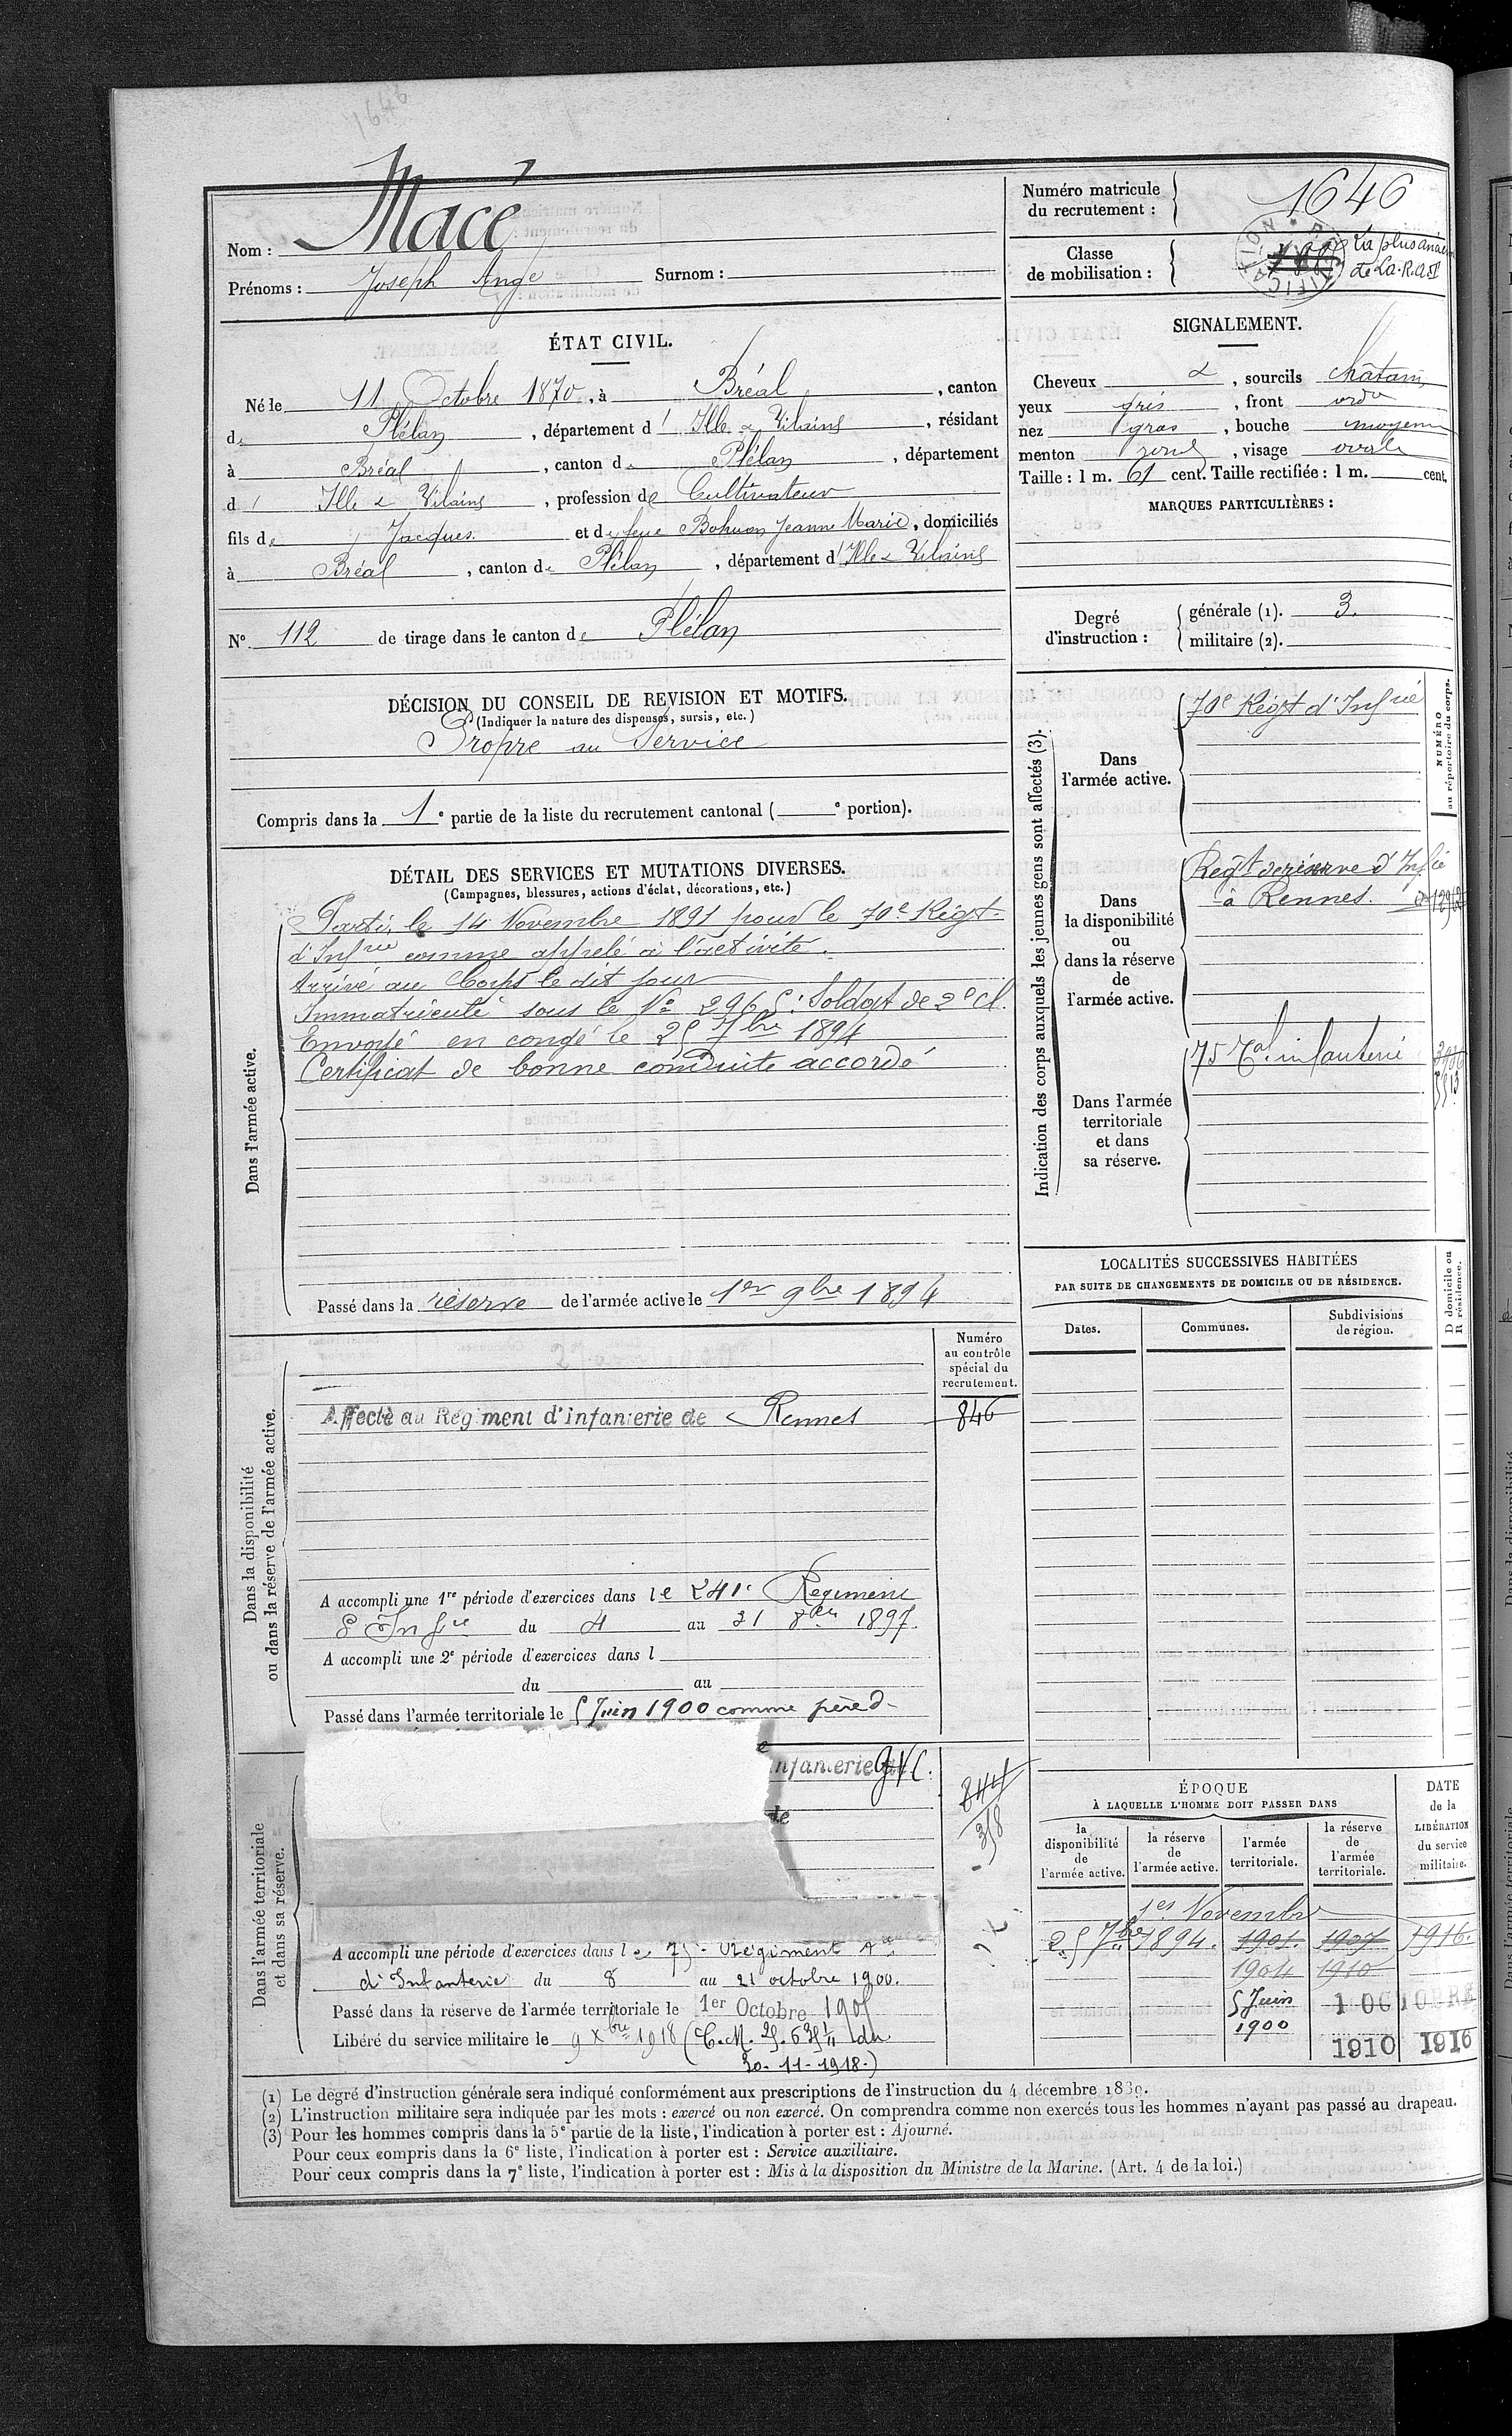 1646
Nom : Macé
Prénoms : Joseph Ange Surnom :
Numéro matricule du recrutement : 1646
Classe de mobilisation : La plus ancienne de La R.A.T
ÉTAT CIVIL.
Né le 11 Octobre 1870, à Bréal, canton
de Plélan, département d' Ille & Vilaine, résidant
à Bréal, canton de Plélan, département
d' Ille & Vilaine, profession de Cultivateur
fils de Jacques et de feue Bohuon Jeanne Marie, domiciliés
à Bréal, canton de Plélan, département d' Ille & Vilaine
N° 112 de tirage dans le canton de Plélan
SIGNALEMENT.
Cheveux &, sourcils châtain
yeux gris, front ordre
nez gros, bouche moyenne
menton rond, visage ovale
Taille : 1 m. 61 cent. Taille rectifiée : 1 m. cent.
MARQUES PARTICULIÈRES :
Degré d'instruction :
générale (1). 3.
militaire (2).
DÉCISION DU CONSEIL DE REVISION ET MOTIFS.
(Indiquer la nature des dispenses, sursis, etc.)
Propre au Service
Compris dans la 1e partie de la liste du recrutement cantonal ( e portion).
DÉTAIL DES SERVICES ET MUTATIONS DIVERSES.
(Campagnes, blessures, actions d'éclat, décorations, etc.)
Dans l'armée active.
Parti, le 14 Novembre 1891 pour le 70e Régt
d'Infrie comme appelé à l'activité.
Arrivé au Corps le dit jour
Immatriculé sous le No 2965. Soldat de 2e cl.
Envoyé en congé le 25 7bre 1894
Certificat de bonne conduite accordé
Passé dans la réserve de l'armée active le 1er 9bre 1894
Indication des corps auxquels les jeunes gens sont affectés (3).
NUMÉRO au répertoire du corps.
Dans l'armée active.
70e Régt d'Infrie
Dans la disponibilité ou dans la réserve de l'armée active.
Régt de réserve d'Infie
à Rennes.
Dans l'armée territoriale et dans sa réserve.
75 Tal infanterie
LOCALITÉS SUCCESSIVES HABITÉES
PAR SUITE DE CHANGEMENTS DE DOMICILE OU DE RÉSIDENCE.
Dates.
Communes.
Subdivisions de région.
D domicile ou R résidence.
Dans la disponibilité
ou dans la réserve de l'armée active.
Numéro au contrôle spécial du recrutement.
Affecté au Régiment d'infanterie de Rennes 846
A accompli une 1re période d'exercices dans le 241e Régiment
d'Infie du 4 au 31 8bre 1897.
A accompli une 2e période d'exercices dans l
du au
Passé dans l'armée territoriale le 5 Juin 1900 comme père d
Dans l'armée territoriale
et dans sa réserve.
infanterie GVC.
de
844
318
A accompli une période d'exercices dans le 75e Régiment
d'Infanterie du 8 au 21 octobre 1900.
Passé dans la réserve de l'armée territoriale le 1er Octobre 1905
Libéré du service militaire le 9 Xbre 1918 (C.M. du
30-11-1918.)
ÉPOQUE
À LAQUELLE L'HOMME DOIT PASSER DANS
la disponibilité de l'armée active.
la réserve de l'armée active.
l'armée territoriale.
la réserve de l'armée territoriale.
DATE de la LIBÉRATION du service militaire.
1er Novembre
25 7bre 1894. 1901. 1907 1916.
1904 1910
5 Juin 1 OCTOBRE
1900
1910 1916
(1) Le degré d'instruction générale sera indiqué conformément aux prescriptions de l'instruction du 4 décembre 1889.
(2) L'instruction militaire sera indiquée par les mots : exercé ou non exercé. On comprendra comme non exercés tous les hommes n'ayant pas passé au drapeau.
(3) Pour les hommes compris dans la 5e partie de la liste, l'indication à porter est : Ajourné.
Pour ceux compris dans la 6e liste, l'indication à porter est : Service auxiliaire.
Pour ceux compris dans la 7e liste, l'indication à porter est : Mis à la disposition du Ministre de la Marine. (Art. 4 de la loi.)